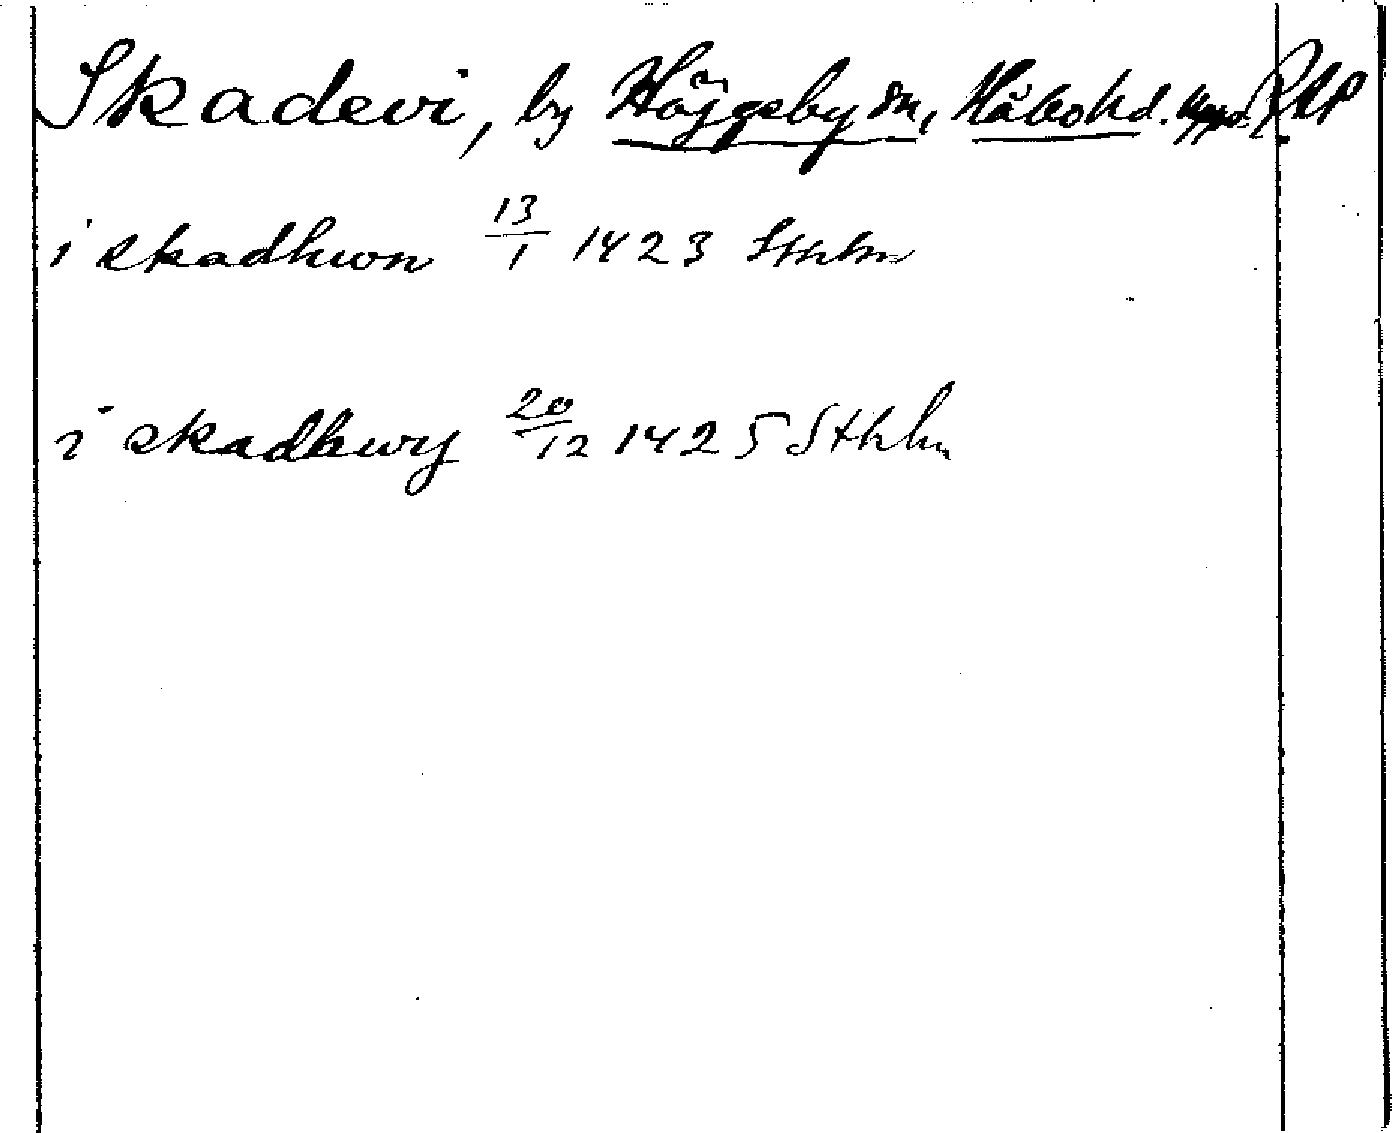 Skadevi, by Höjgeby sn, Håbo hd. Upps. RAP
i skadhwon 13/1 1423 Sthlm
i skadhwy 20/12 1425 Sthlm